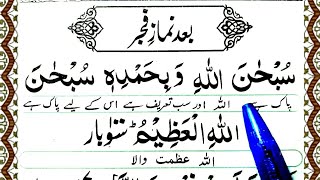 بعد نماز فجر
سُبْحٰنَ اللّٰهِ وَبِحَمْدِهٖ سُبْحٰنَ
پاک ہے اللہ اور سب تعریف ہے اس کے لیے پاک ہے
اللّٰهِ الْعَظِيْمِ ؕ سَوْبار
اللہ عظمت والا